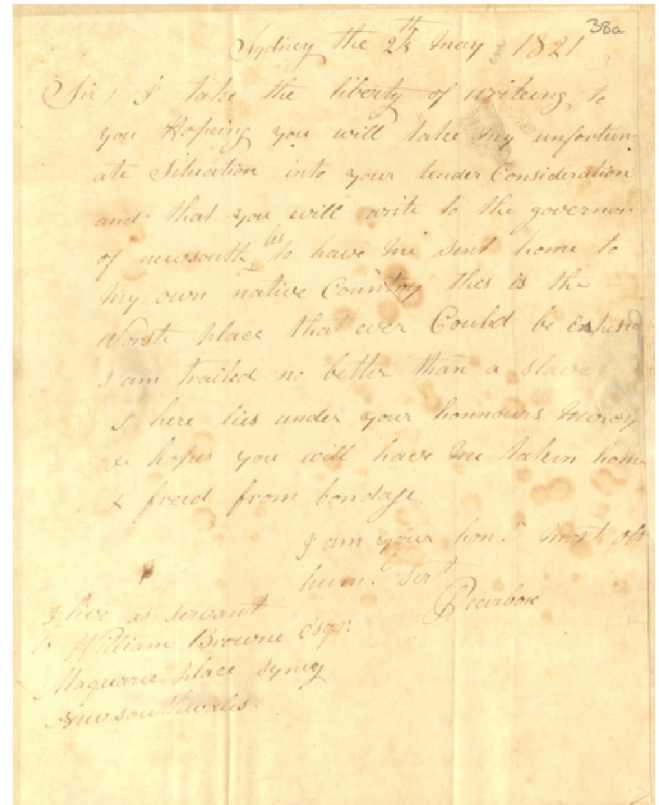 38a
Sydney the 24th May 1821
Sir, I take the liberty of writeing to
you Hopeing you will take my unfortun
ate Situation into your tender Consideration
and that you will write to the governor
of newsouth to have me sent home to
my own native Country this is the
Worste place that ever Could be
I am traited no better than a slave
I here lies under your honnours mercy
& hopes you will have me taken home
& freed from bondage
I am your hon.r most
hum.l Ser.t
I live as servant
to William Browne Esqr.
Maquarie place Syney
Newsouthwales.